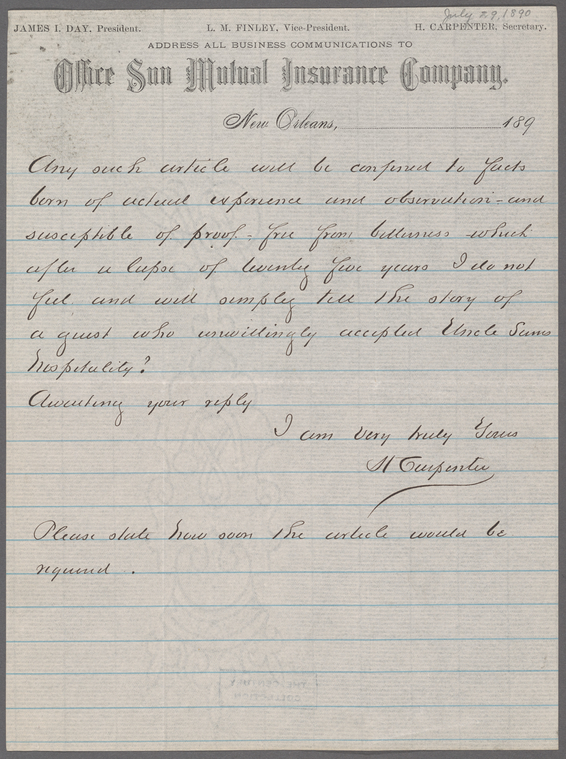 July 29, 1890
JAMES I. DAY, President. L. M. FINLEY, Vice-President. H. CARPENTER, Secretary.
ADDRESS ALL BUSINESS COMMUNICATIONS TO
Office Sun Mutual Insurance Company.
New Orleans, 189
Any such article will be confined to facts
born of actual experience and observation - and
susceptible of proof - free from bitterness which
after a lapse of twenty five years I do not
feel and will simply tell the story of
a guest who unwillingly accepted Uncle Sams
hospitality?
Awaiting your reply
I am very truly Yours
H Carpenter
Please state how soon the article would be
required.